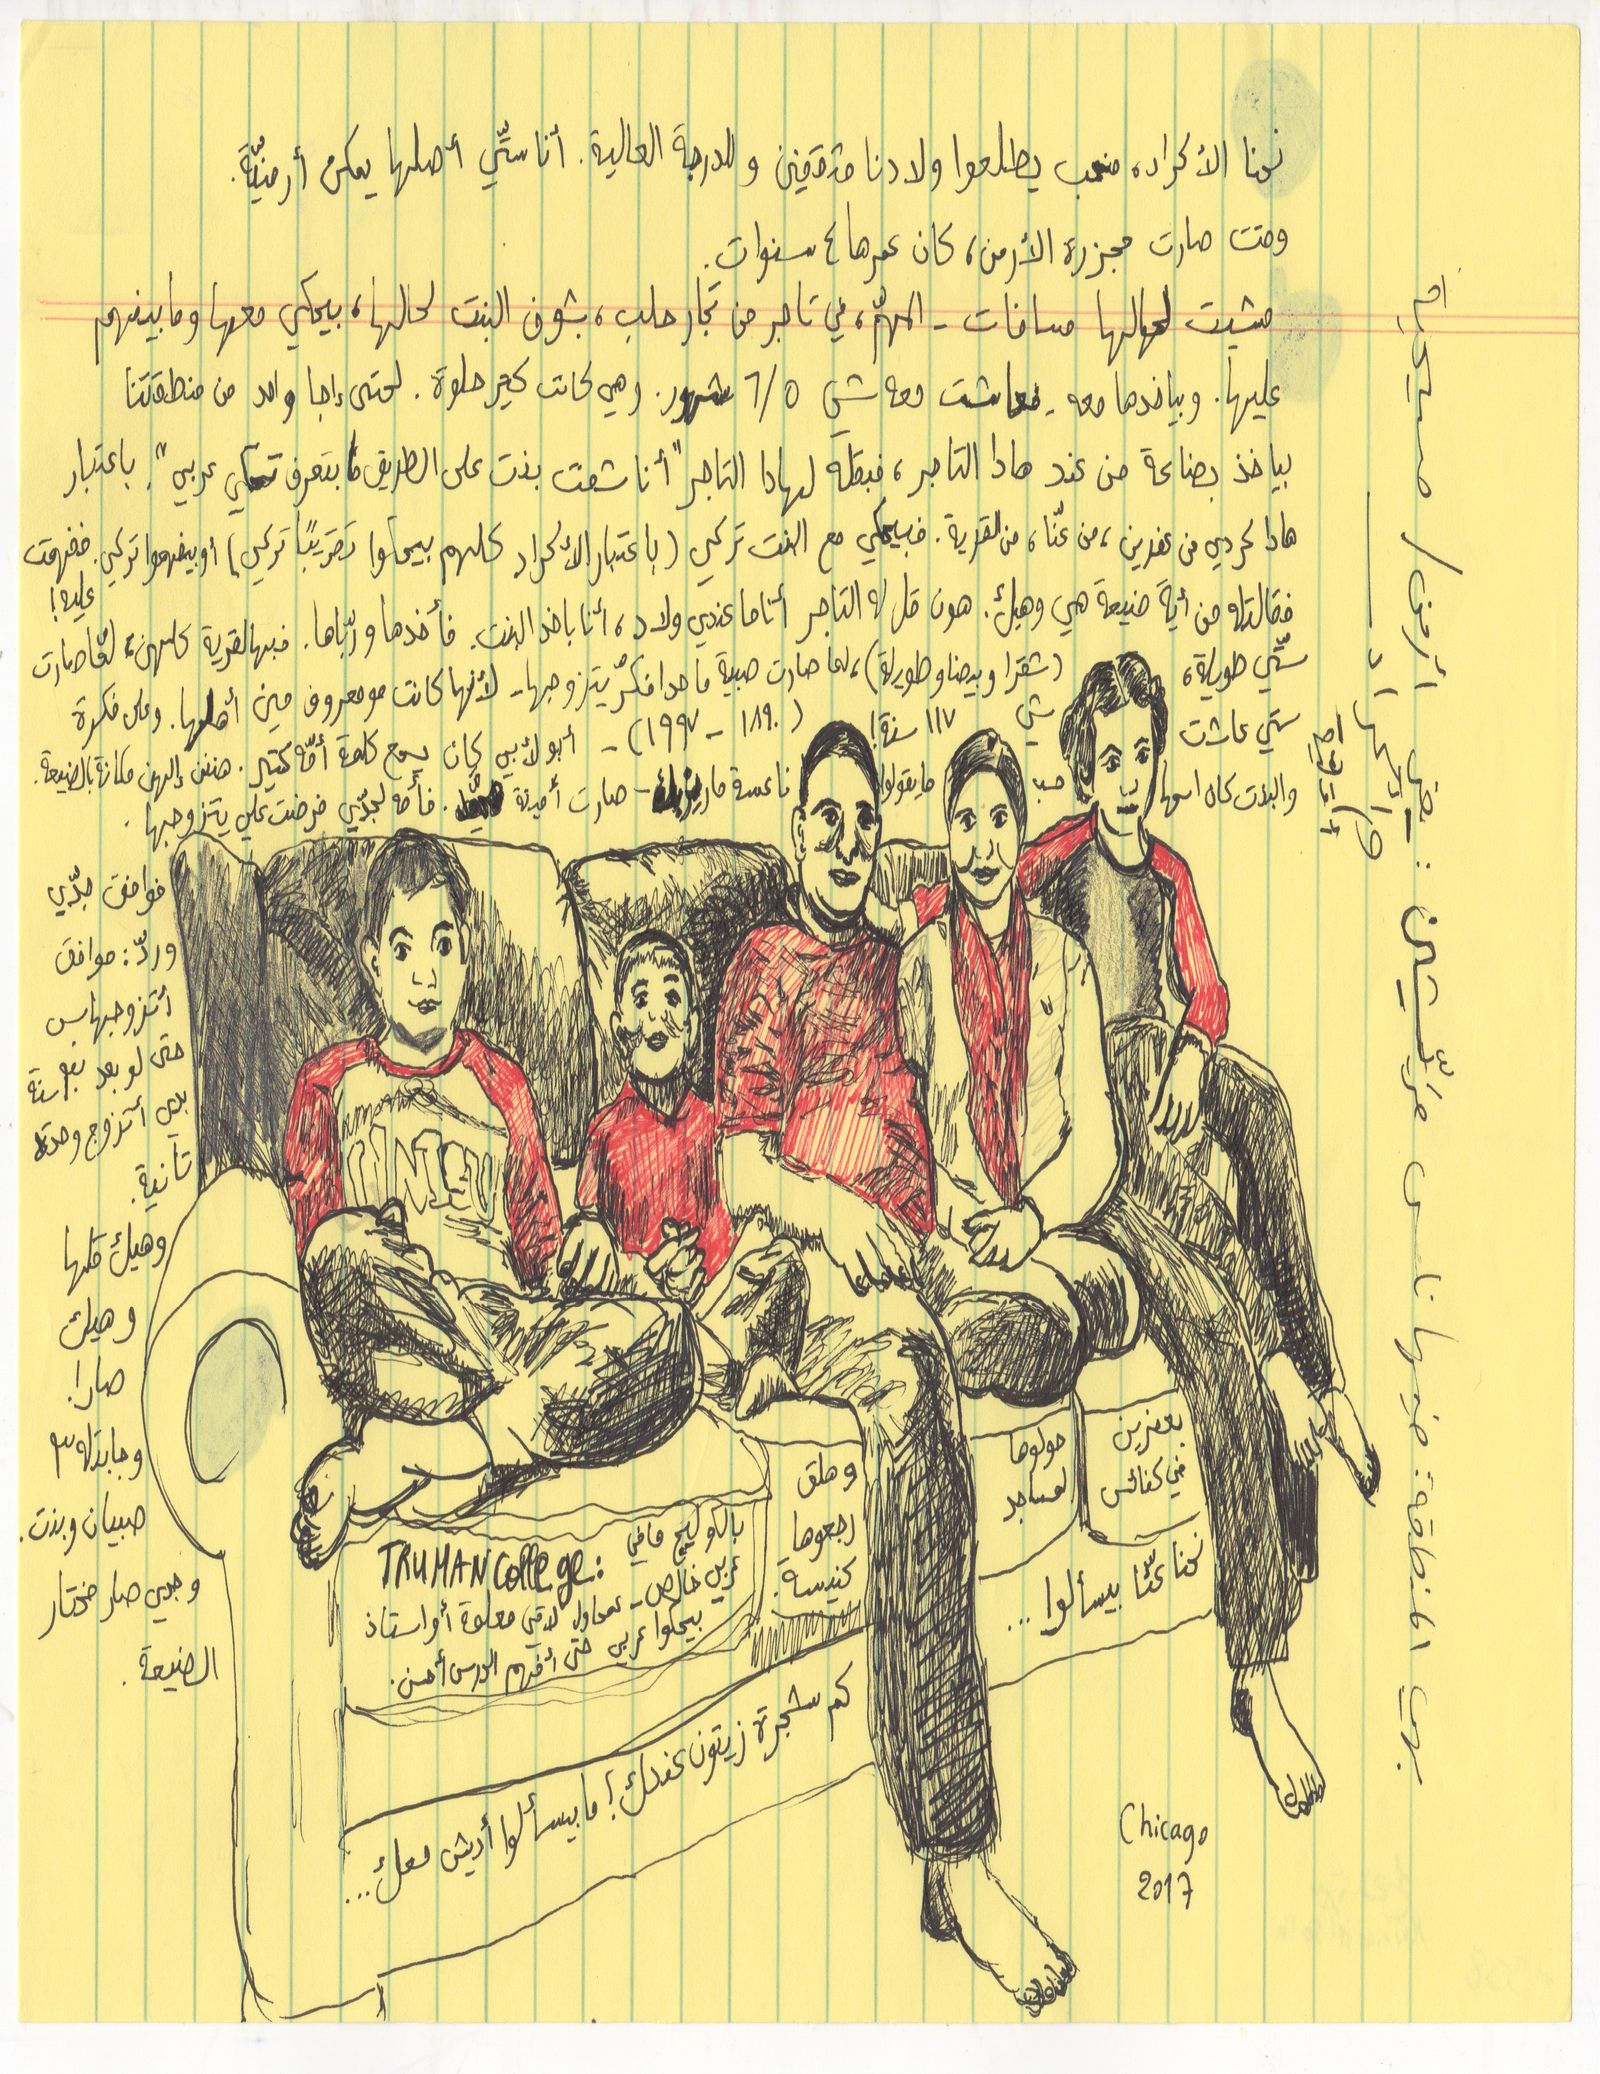 نحنا الأكراد، منحب يطلعوا ولادنا مثقفين وللدرجة العالية. أنا ستّي أصلها يمكن أرمنيّة.
وقت صارت مجزرة الأرمن، كان عمرها ٤ سنوات.
مشيت لحالها مسافات - المهمّ، في تاجر من تجار حلب، بشوف البنت لحالها، بيحكي معها وما بيفهم
عليها. وبياخدها معه - فعاشت معه شي ٥/٦ شهور. وهي كانت كتير حلوة. لحتى إجا واحد من منطقتنا
بياخذ بضاعة من عند هادا التاجر، فبقله لهادا التاجر "أنا شفت بنت على الطريق ما بتعرف تحكي عربي". باعتبار
هادا كردي من عفرين، من عنّا، من القرية. فبيحكي مع البنت تركي (باعتبار الأكراد كلهم بيحكوا تقريبًا تركي) أو بيفهموا تركي. ففهمت
عليه!
فقالتله من أيّة ضيعة هي وهيك. هون قال له التاجر أنا ما عندي ولاد، أنا باخد البنت. فأخذها وربّاها. فبهالقرية كلهن، لمّا صارت
ستّي طويلة، (شقرا وبيضا وطويلة)، لما صارت صبية ما حدا فكّر يتزوجها - لأنها كانت مو معروف مين أهلها. وعلى فكرة
ستي عاشت شي ١١٧ سنة! (١٨٩٠ - ١٩٩٧) - أبو لأبي كان يسمع كلمة أمّه كتير. هنن إلهن مكانة بالضيعة.
والبنت كان اسمها ما يقولوا - صارت أمينة. فأمه لجدّي فرضت علي يتزوجها.
فوافق جدّي
وردّ: موافق
أتزوجها بس
حتى لو بعد سنة
بدي أتزوج وحدة
تانية.
وهيك قلها
وهيك
صار!
وجابتله ٣
صبيان وبنت.
وجدي صار مختار
الضيعة.
بعفرين
في كنائس
حولوها
لمساجد
وهلق
رجعوها
كنيسة.
TRUMAN College:
بالكوليج ما في
عربي خالص - بحاول لاقي معلمة أو استاذ
بيحكوا عربي حتى أفهم الدرس أحسن.
نحنا عنّا بيسألوا...
كم شجرة زيتون عندك؟ ما بيسألوا أديش معك...
Chicago
2017